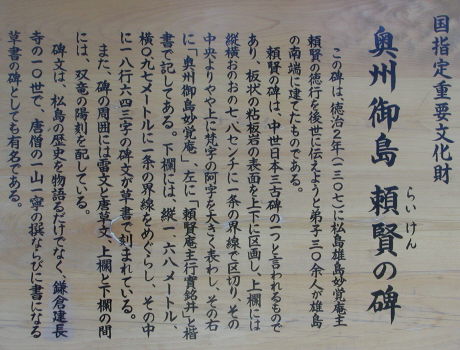 国指定重要文化財
奥州御島 頼賢の碑
らいけん
この碑は、徳治2年(一三〇七)に松島雄島妙覚庵主
頼賢の徳行を後世に伝えようと弟子三〇余人が雄島
の南端に建てたものである。
頼賢の碑は、中世日本三古碑の一つと言われるもので
あり、板状の粘板岩の表面を上下に区画し、上欄には
縦横おのおの七、八センチに一条の界線で区切り、その
中央よりやや上に梵字の阿字を大きく表わし、その右
に「奥州御島妙覚庵」、左に「頼賢庵主行實銘并」と楷
書で記してある。下欄には、縦一、六八メートル、
横〇、九七メートルに一条の界線をめぐらし、その中
に一八行六四三字の碑文が草書で刻まれている。
また、碑の周囲には雷文と唐草文、上欄と下欄の間
には、双竜の陽刻を配している。
碑文は、松島の歴史を物語るだけでなく、鎌倉建長
寺の一〇世で、唐僧の一山一寧の撰ならびに書になる
草書の碑としても有名である。